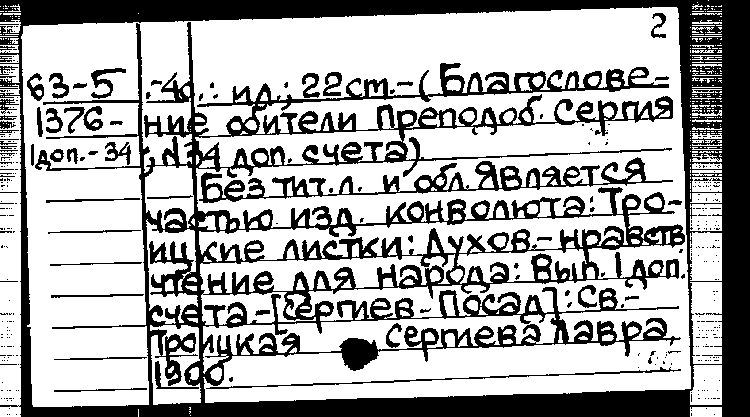 2
63-5 .-4с.: ил.; 22ст.-(Благослове=
1376- ние обители Препододоб. Сергия
1доп.-34 ; N34 доп. счета)
Без тит.л. и обл. Является
частью изд. конволюта: Тро-
ицкие листки: Духов.-нравств
чтение для народа: Вып. 1 доп.
счета.-[Сергиев-Посад]: Св.-
Троицкая Сергиева Лавра,
1900.